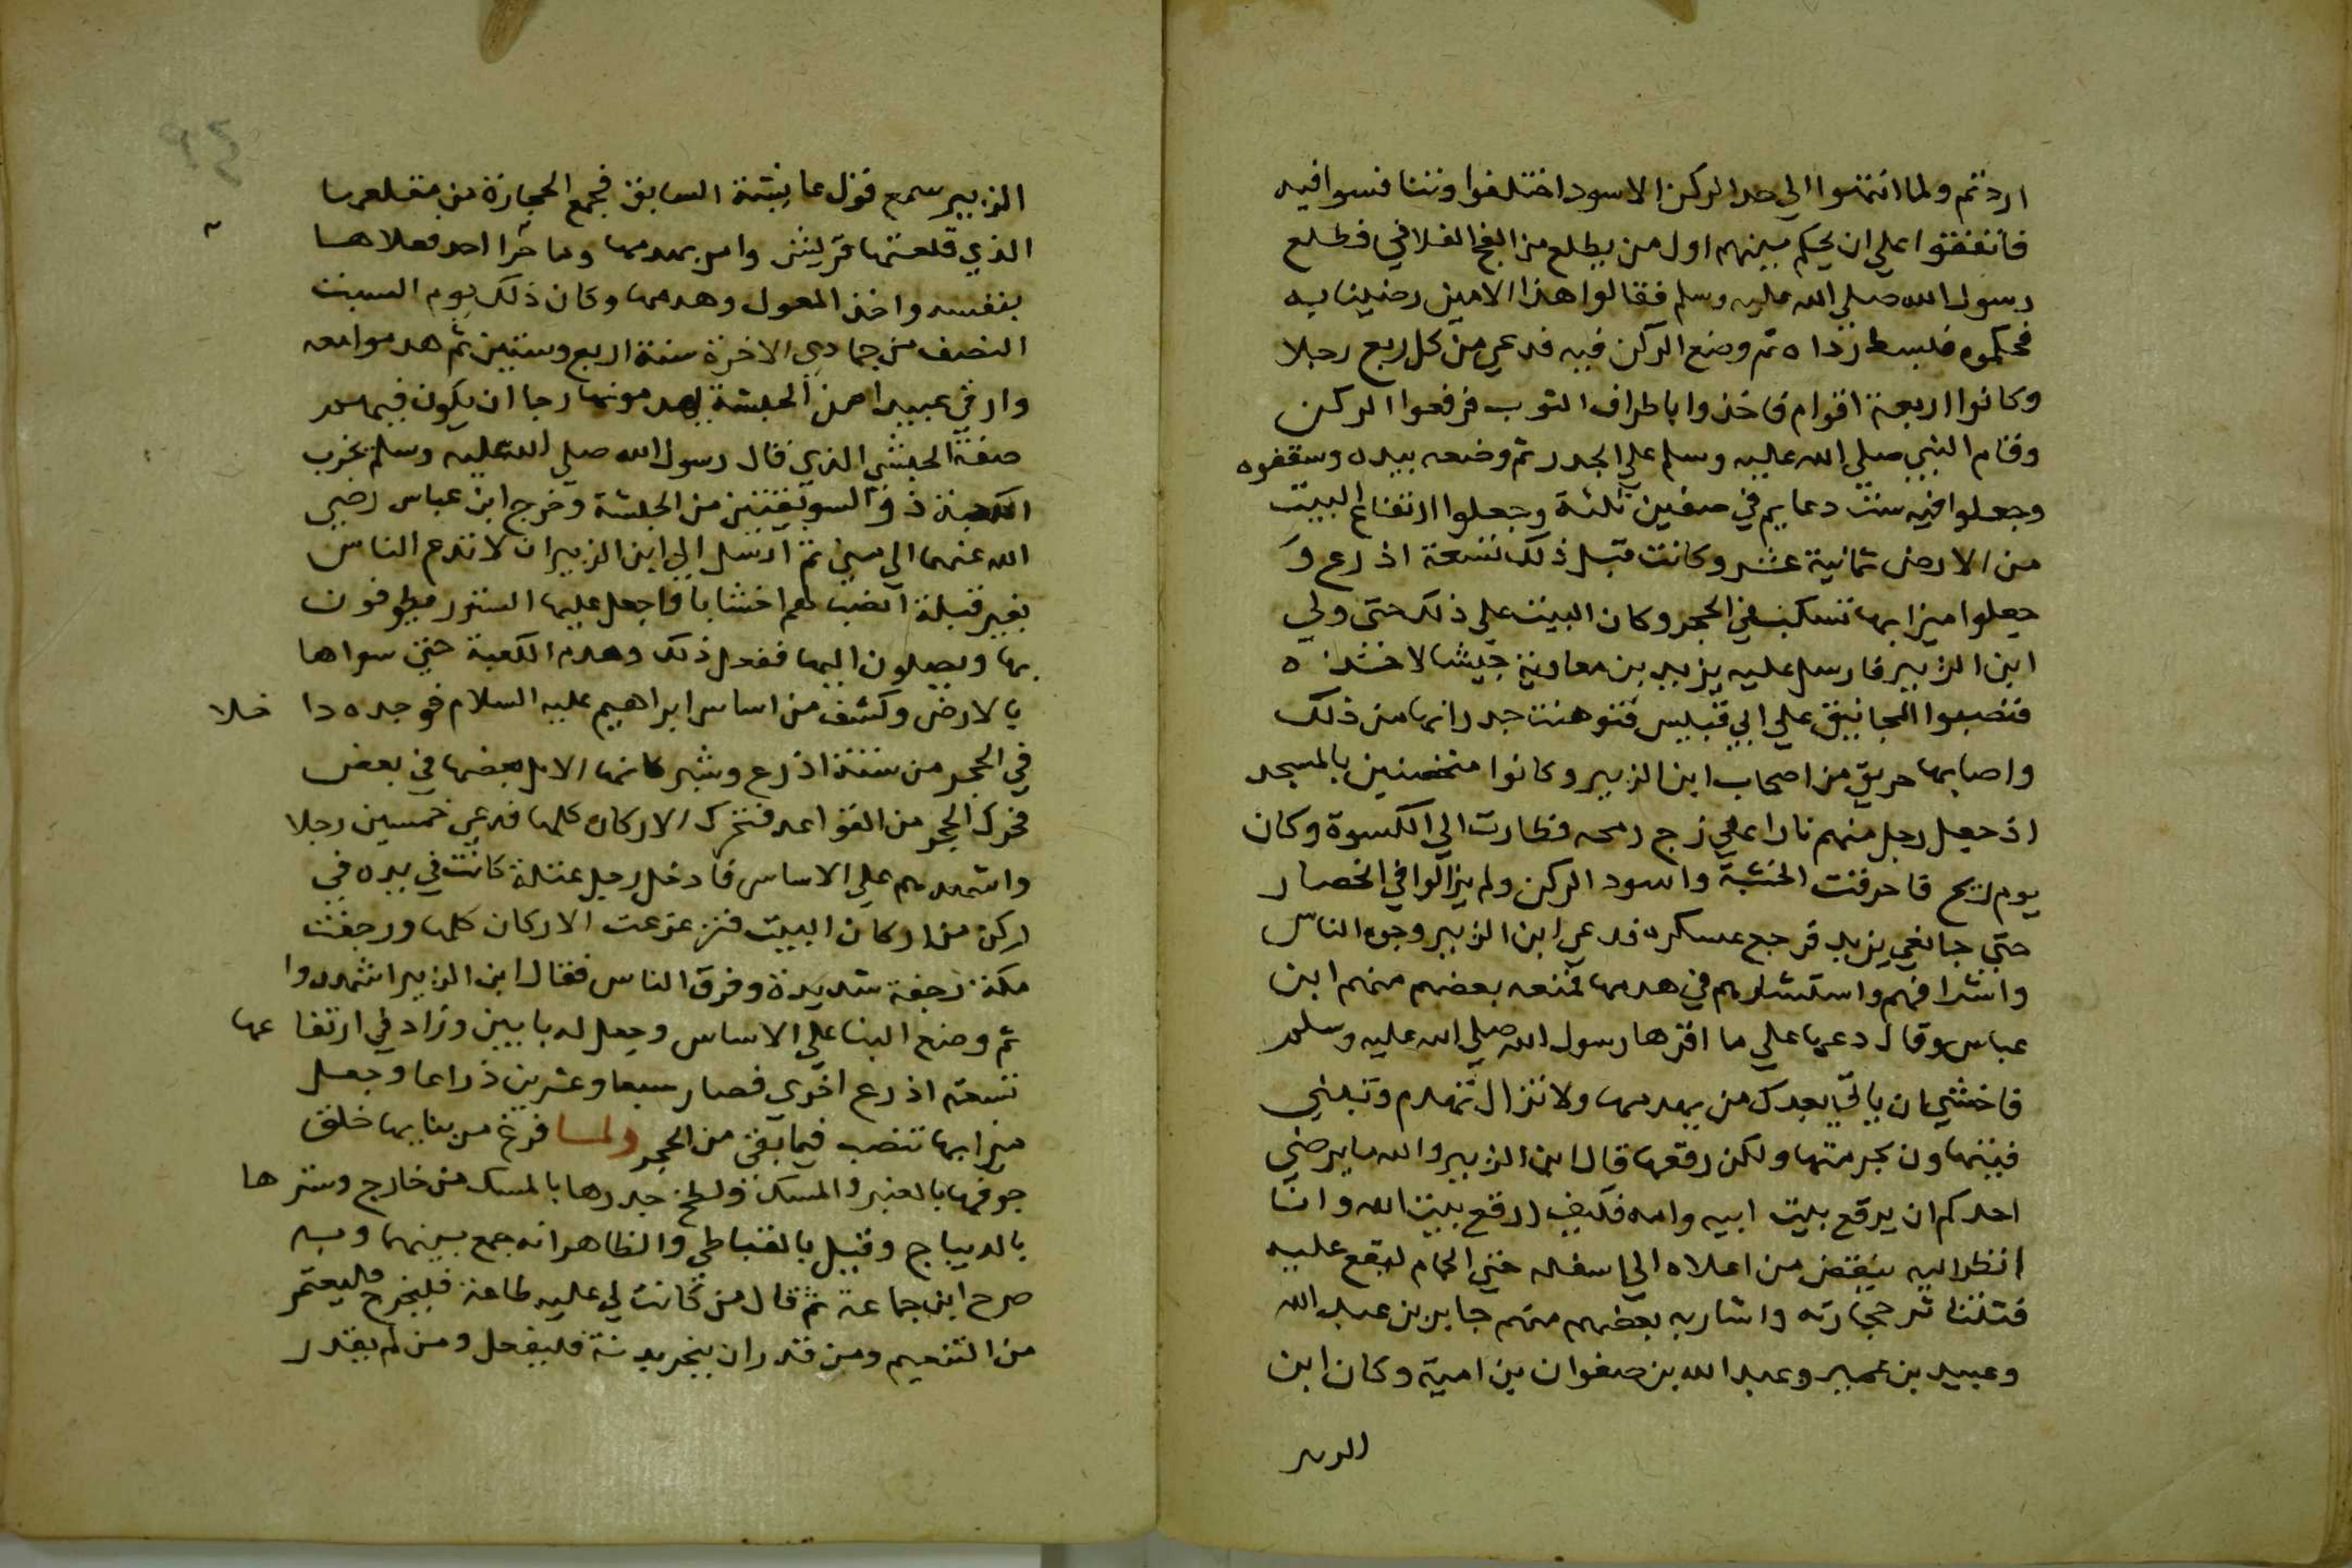 اردتم ولما انتهوا الي حد الركن الاسود اختلفوا وتنافسوا فيه
فاتفقوا علي ان يحكم بينهم اول من يطلع من الفج الفلاني فطلع
رسول الله صلي الله عليه وسلم فقالوا هذا الامين رضينا به
فحكموه فبسط رداه ثم وضع الركن فيه فدعي من كل ربع رجلا
وكانوا اربعة اقوام فاخذوا باطراف الثوب فرفعوا الركن
وقام النبي صلي الله عليه وسلم علي الجدر ثم وضعه بيده وسقفوه
وجعلوا فيه ست دعايم في صفين ثلثة وجعلوا ارتفاع البيت
من الارض ثمانية عشر وكانت قبل ذلك تسعة اذرع و
جعلوا ميزابها تسكب في الحجر وكان البيت علي ذلك حتى ولي
ابن الزبير فارسل عليه يزيد بن معاوية جيشا
فنصبوا المجانيق علي ابي قبيس فتوهنت جدرانها من ذلك
واصابها حريق من اصحاب ابن الزبير وكانوا متحصنين بالمسجد
اذ جعل رجل منهم نارا علي زج رمحه فطارت الي الكسوة وكان
يوم ريح فاحرقت الخشبة واسود الركن ولم يزالوا في الحصار
حتي جا نعي يزيد فرجع عسكره فدعي ابن الزبير وجوه الناس
واشرافهم واستشارهم في هدمها فمنعه بعضهم منهم ابن
عباس وقال دعها علي ما اقرها رسول الله صلي الله عليه وسلم
فاخشي ان ياتي بعدك من يهدمها ولا تزال تهدم وتبني
فيتهاون بحرمتها ولكن رقعها قال ابن الزبير والله ما يرضي
احدكم ان يرقع بيت ابيه وامه فكيف ارقع بيت الله وانا
انظر اليه ينقض من اعلاه الي اسفله حتي الحمام ليقع عليه
فتتناثر حجارته واشار به بعضهم منهم جابر بن عبد الله
وعبيد بن عمير وعبد الله بن صفوان بن امية وكان ابن
الزبير
الزبير سمع قول عايشة السابق فجمع الحجارة من مقلعها
الذي قلعتها قريش وامر بهدمها وما اجترا احد فعلاها
بنفسه واخذ المعول وهدمها وكان ذلك يوم السبت
النصف من جمادي الاخرة سنة اربع وستين ثم هدموا معه
وارقي عبيدا من الحبشة يهدمونها رجا ان يكون فيهم
صفة الحبشي الذي قال رسول الله صلي الله عليه وسلم يخرب
الكعبة ذو السويقتين من الحبشة وخرج ابن عباس رضي
الله عنهما الي مني ثم ارسل الي ابن الزبير ان لا تدع الناس
بغير قبلة انصب لهم اخشابا واجعل عليها الستور يطوفون
بها ويصلون اليها ففعل ذلك وهدم الكعبة حتي سواها
بالارض وكشف من اساس ابراهيم عليه السلام فوجده داخلا
في الحجر من ستة اذرع وشبر كانها الابل بعضها في بعض
فحرك الحجر من القواعد فتحرك الاركان كلها فدعي خمسين رجلا
واشهدهم علي الاساس فادخل رجل عتلة كانت في يده في
ركن من اركان البيت فتزعزعت الاركان كلها ورجفت
مكة رجفة شديدة وفرق الناس فقال ابن الزبير اشهدوا
ثم وضع البنا علي الاساس وجعل له بابين وزاد في ارتفاعها
تسعة اذرع اخرى فصار سبعا وعشرين ذراعا وجعل
ميزابها تنصب فيما بقي من الحجر ولما فرغ من بنايها خلق
جوفها بالعنبر والمسك ولطخ جدرها بالمسك من خارج وسترها
بالديباج وقيل بالقباطي والظاهر انه جمع بينهما وبه
صرح ابن جماعة ثم قال من كانت لي عليه طاعة فليخرج فليعتمر
من التنعيم ومن قدر ان ينحر بدنة فليفعل ومن لم يقدر